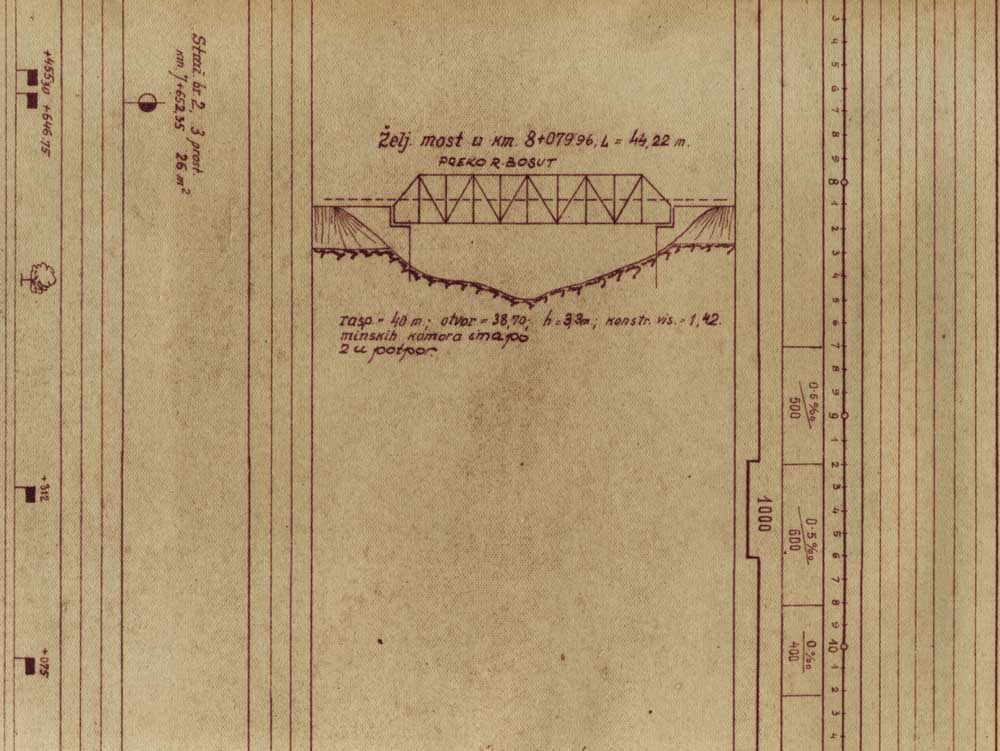 Želj. most u km. 8+079 96, L = 44,22 m.
PREKO R. BOSUT
rasp. = 40 m.; otvor = 38,70; h = 3,3m.; konstr. vis. = 1,42.
minskih komora ima po
2 u potpor.
Straž. br. 2, 3 prost.
km. 7+652,35 26 m²
+455,30 +646,75
+312
+075
1000
0·6‰
500
0·5‰
600
0‰
400
3
4
5
6
7
8
9
8
1
2
3
4
5
6
7
8
9
9
1
2
3
4
5
6
7
8
9
10
1
2
3
4